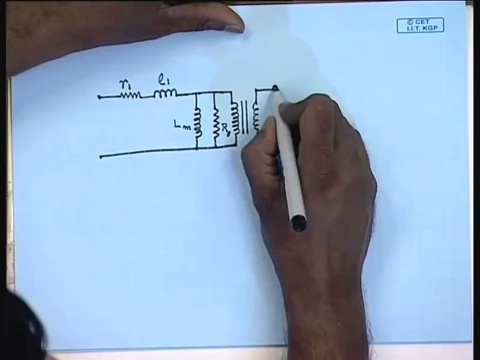 © CET
I.I.T. KGP
r₁ l₁
Lm R